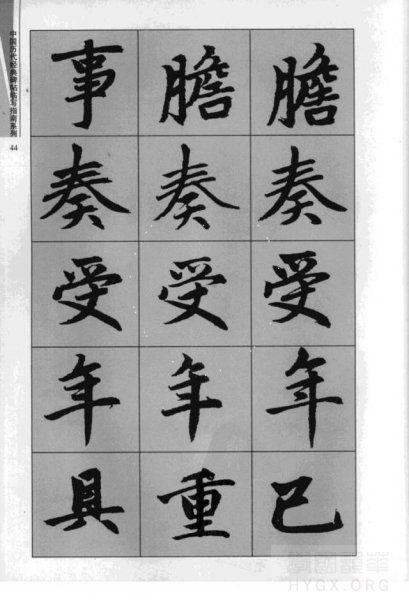 膽奏受年已
膽奏受年重
事奏受年具
中国历代经典碑帖临写指南系列 44
華藝國學
HYGX.ORG